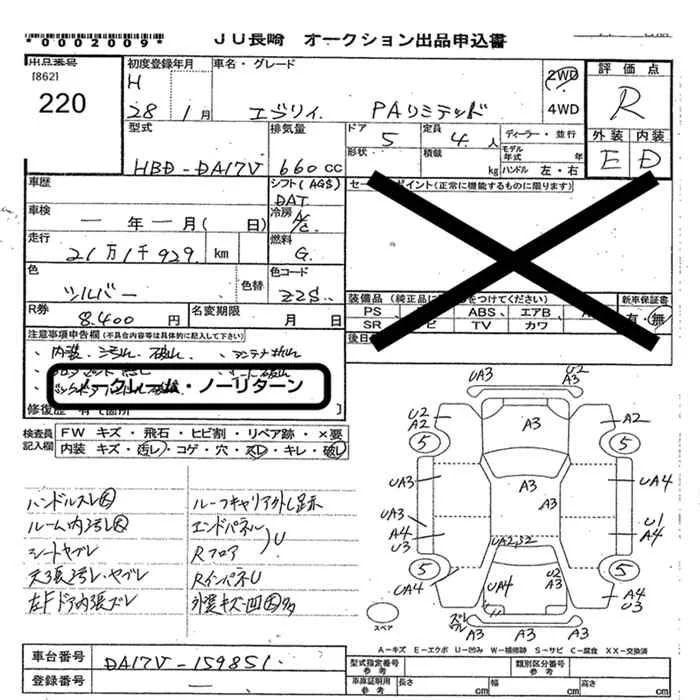 *0002009*
JU長崎 オークション出品申込書
出品番号
[862]
220
初度登録年月
H
28 1月
車名・グレード
エブリイ PAリミテッド
2WD
4WD
評価点
R
型式
HBD-DA17V
排気量
660cc
ドア
5
定員
4人
形状
積載
kg
ディーラー・並行
モデル年式 年
ハンドル 左・右
外装 内装
E D
車歴
シフト(AGS)
DAT
セー ポイント(正常に機能するものに限ります)
車検
一年一月( 日)
冷房
A/C
走行
21万1千929 km
燃料
G
色
シルバー
色替
色コード
Z2S
R券
8,400 円
名変期限
月 日
装備品
PS
ABS、エアB、
SR
TV カワ
新車保証書
有・無
後日
注意事項申告欄(不具合内容等は具体的に記入して下さい)
・内装、汚れ、破れ ・アンテナ折れ
ノークレーム・ノーリターン
修復歴 有(箇所 )
検査員記入欄
FW キズ・飛石・ヒビ割・リペア跡・×要
内装 キズ・汚レ・コゲ・穴・スレ・キレ・破レ
ハンドルスレ大
ルーム内汚レ大
シートヤブレ
天張汚レ・ヤブレ
左Fドア内張ズレ
ルーフキャリア外し跡
エンドパネル
Rフロア
U
RインパネU
外装キズ凹大多
UA3
U2
A3
U2
A2
A3
A2
5
5
UA3
A3
UA4
UA3
U1
A4
U3
A4
UA2,S2
5
5
UA4
UA4
U2
A3
A3
A4
U3
ズレ
ワレ
A3
A3
A3
スペア
A-キズ E-エクボ U-凹み W-補修跡 S-サビ C-腐食 XX-交換済
車台番号
DA17V-159851
登録番号
一
型式指定番号
参考
類別区分番号
参考
車庫証明用
参考
長さ cm
幅 cm
高さ cm